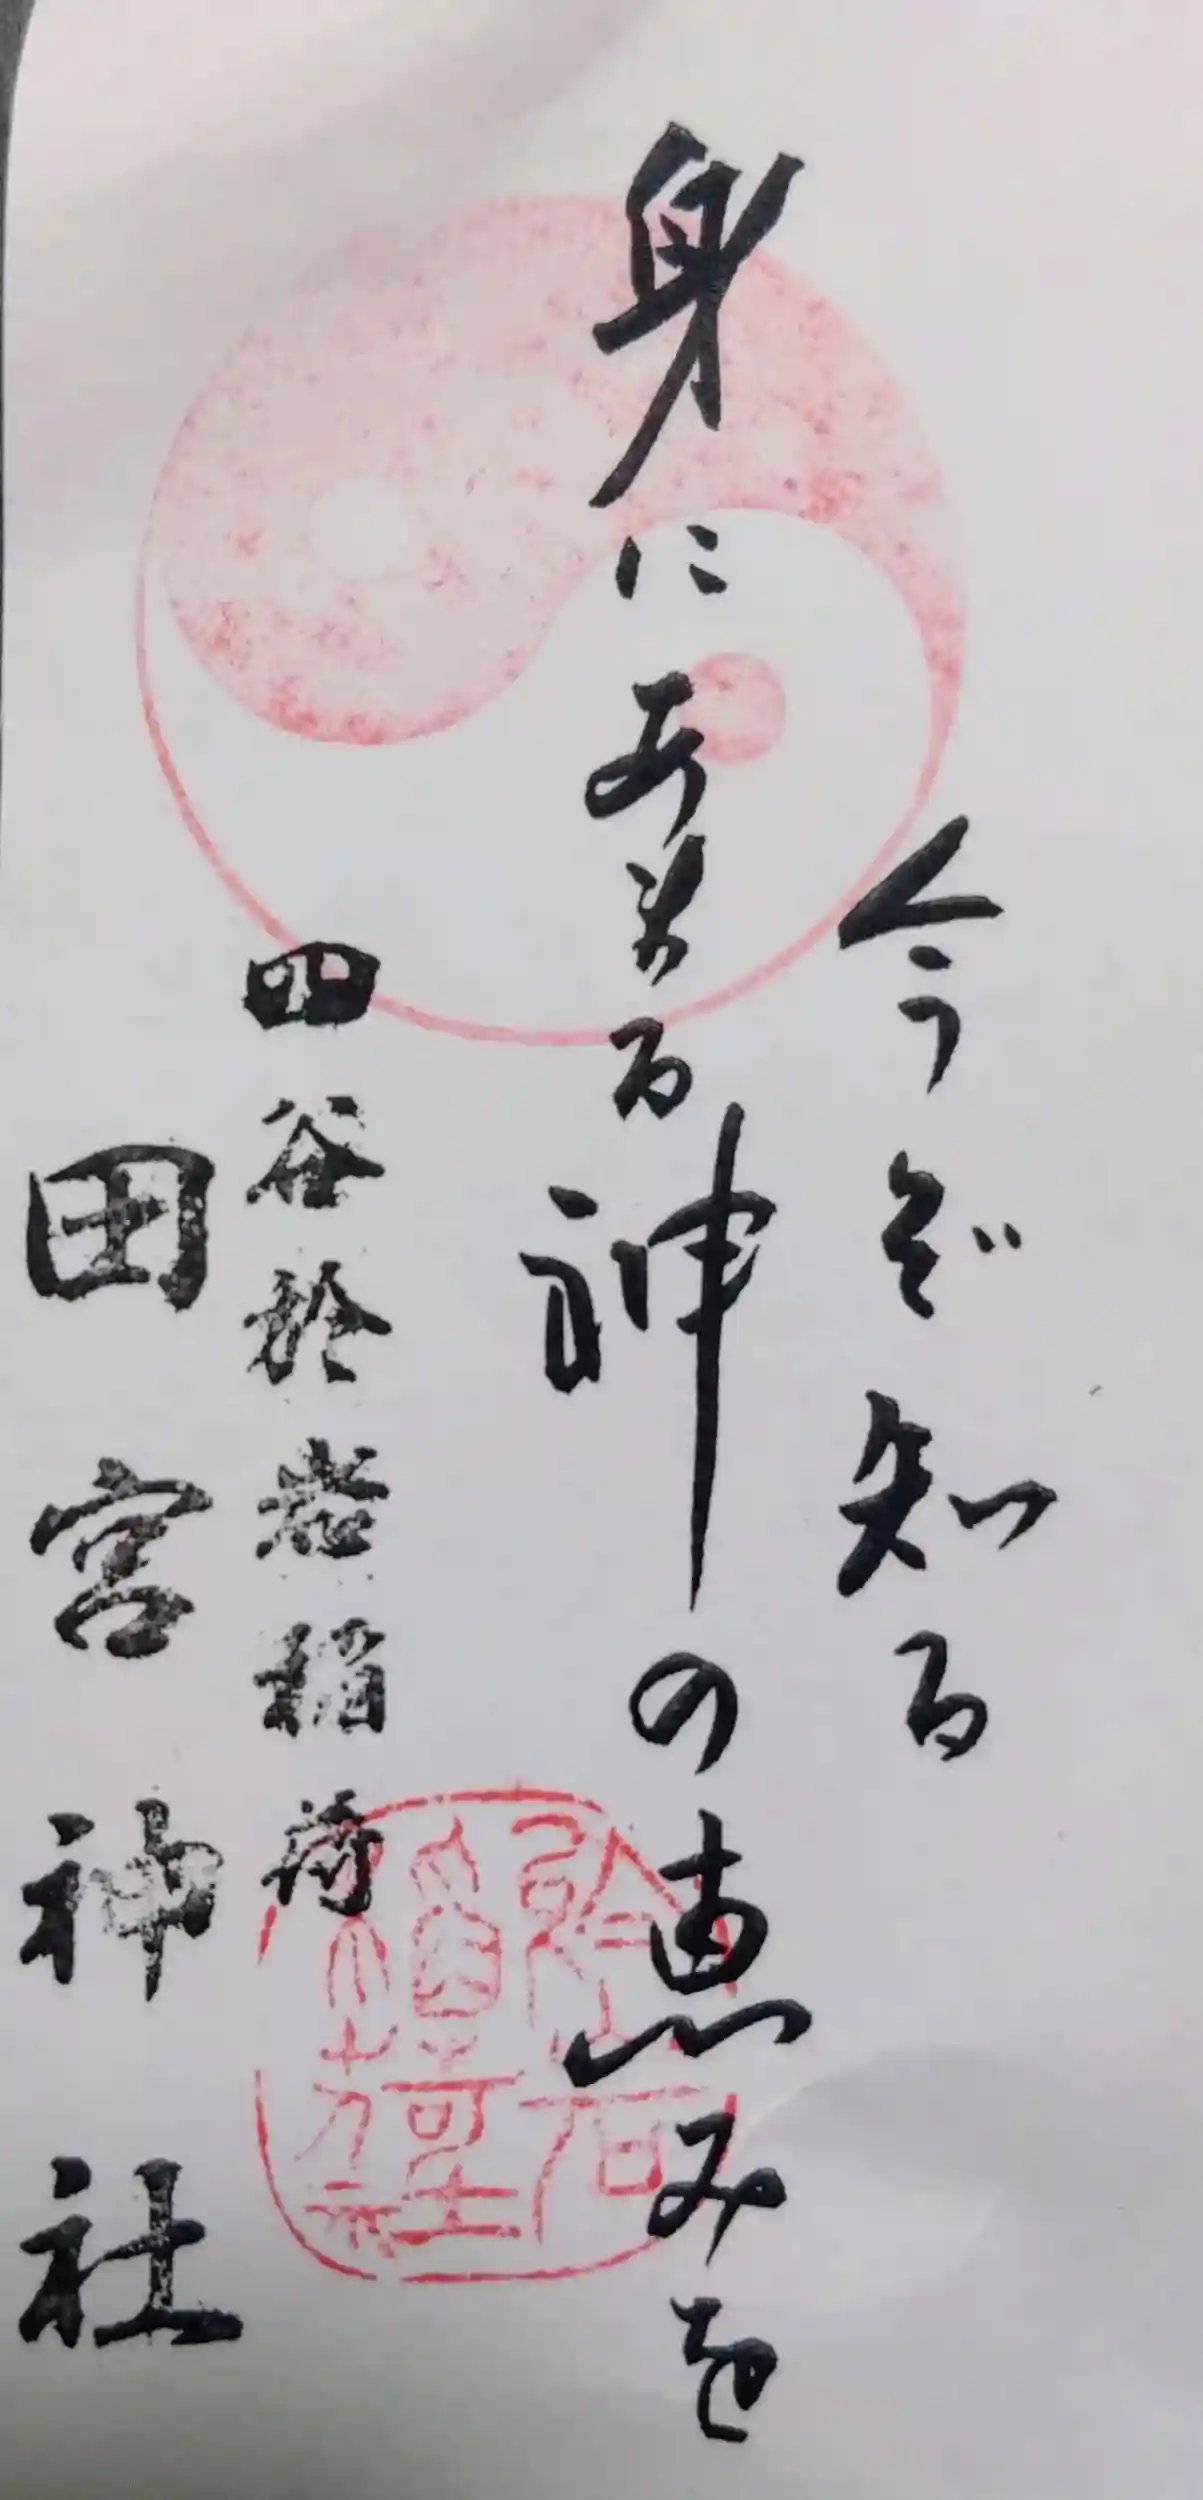 今ぞ知る
身にあまる神の恵みを
四谷於岩稲荷
田宮神社